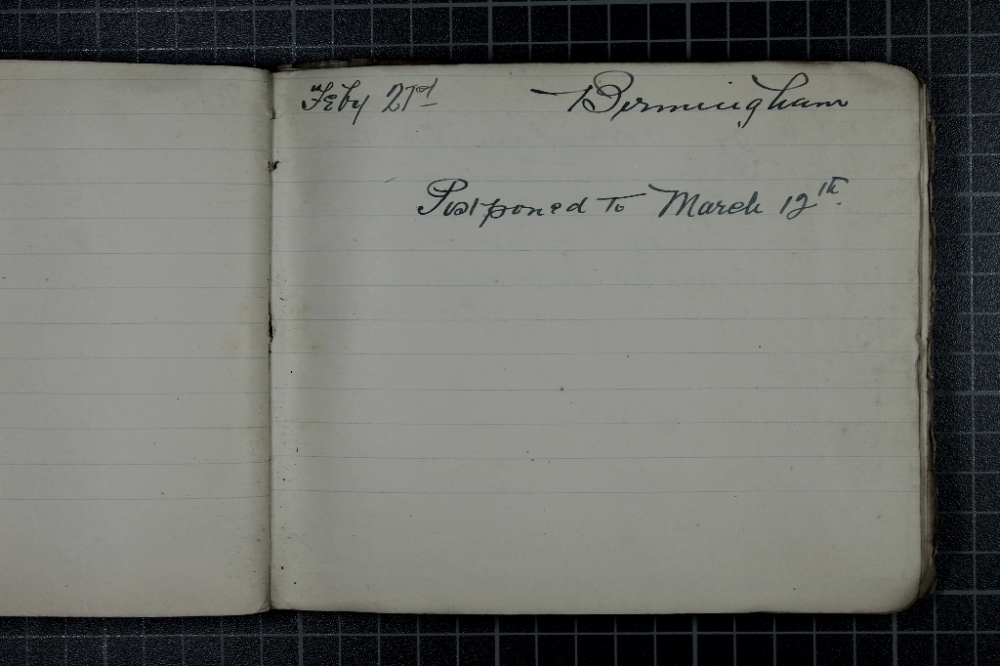 Feby 21st Bermingham
Postponed to March 12th.